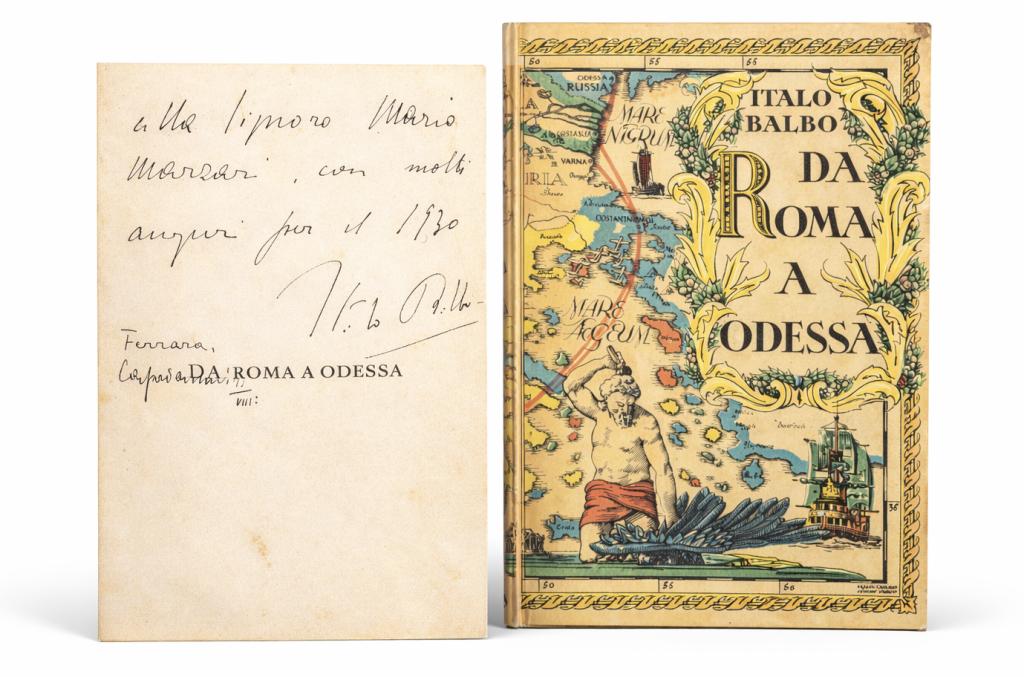 alla Signora Maria
Marzari, con molti
auguri per il 1930
Italo Balbo
Ferrara,
DA ROMA A ODESSA
VIII:
50
55
55
ODESSA
RUSSIA
MARE
NIGRUM
VARNA
COSTANTINOPOLI
MARE
AEGEUM
ITALO
BALBO
DA
ROMA
A
ODESSA
Creta
36
50
55
56